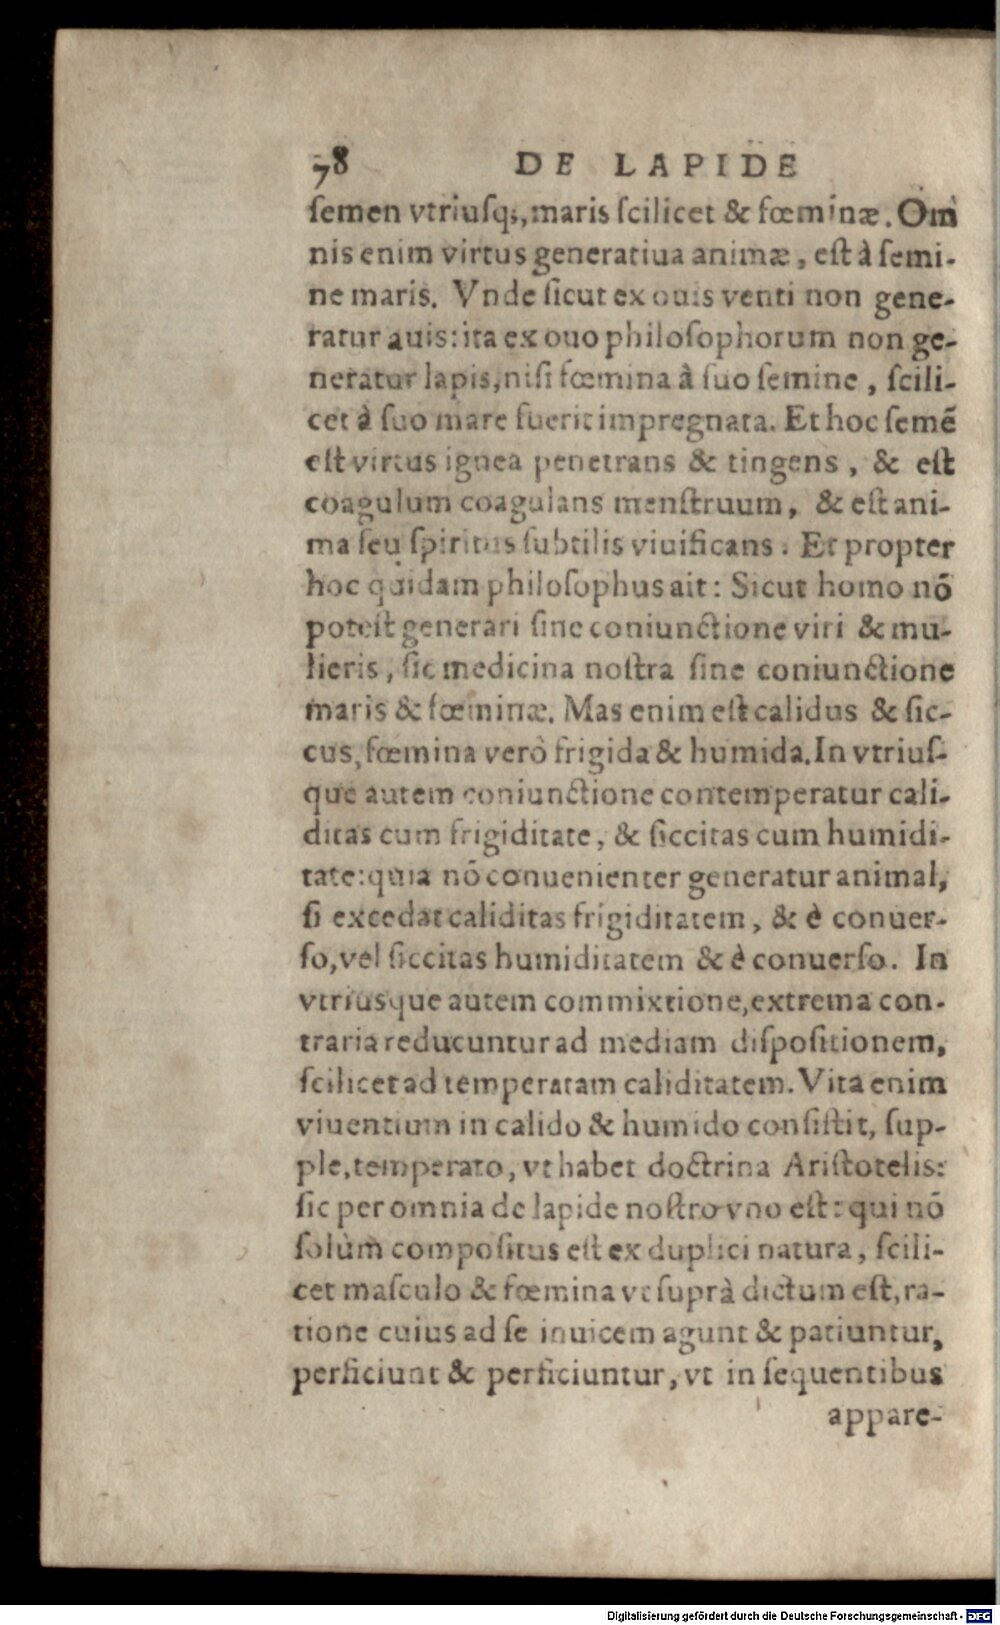 78 DE LAPIDE
ſemen vtriuſq;, maris ſcilicet & fœminæ. Om
nis enim virtus generatiua animæ, eſt à ſemi-
ne maris. Vnde ſicut ex ouis venti non gene-
ratur auis: ita ex ouo philoſophorum non ge-
neratur lapis, niſi fœmina à ſuo ſemine, ſcili-
cet à ſuo mare fuerit impregnata. Et hoc ſemē
eſt virtus ignea penetrans & tingens, & eſt
coagulum coagulans menſtruum, & eſt ani-
ma ſeu ſpiritus ſubtilis viuificans. Et propter
hoc quidam philoſophus ait: Sicut homo nō
poteſt generari ſine coniunctione viri & mu-
lieris, ſic medicina noſtra ſine coniunctione
maris & fœminæ. Mas enim eſt calidus & ſic-
cus, fœmina verò frigida & humida. In vtriuſ-
que autem coniunctione contemperatur cali-
ditas cum frigiditate, & ſiccitas cum humidi-
tate: quia nō conuenienter generatur animal,
ſi excedat caliditas frigiditatem, & è conuer-
ſo, vel ſiccitas humiditatem & è conuerſo. In
vtriusque autem commixtione, extrema con-
traria reducuntur ad mediam diſpoſitionem,
ſcilicet ad temperatam caliditatem. Vita enim
viuentium in calido & humido conſiſtit, ſup-
ple, temperato, vt habet doctrina Ariſtotelis:
ſic per omnia de lapide noſtro vno eſt: qui nō
ſolùm compoſitus eſt ex duplici natura, ſcili-
cet maſculo & fœmina vt ſuprà dictum eſt, ra-
tione cuius ad ſe inuicem agunt & patiuntur,
perficiunt & perficiuntur, vt in ſequentibus
appare-
Digitalisierung gefördert durch die Deutsche Forschungsgemeinschaft - DFG